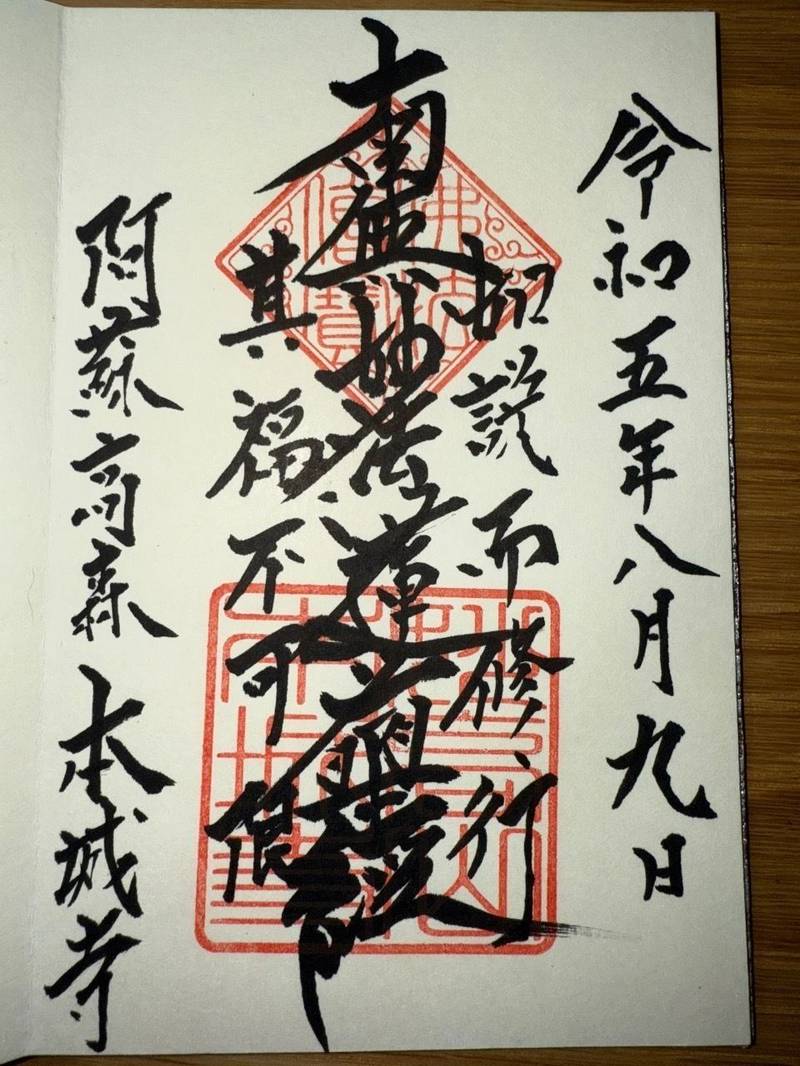 令和五年八月九日
如説而修行
南無妙法蓮華經
其福不可限
阿蘇高森 本城寺
佛法僧寶